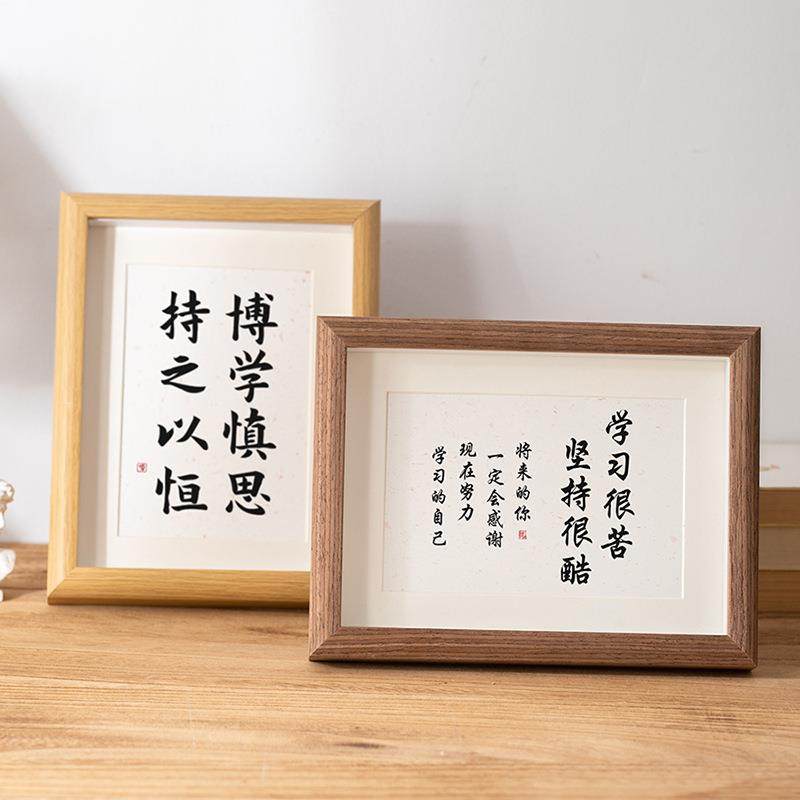 博学慎思
持之以恒
学习很苦
坚持很酷
将来的你
一定会感谢
现在努力
学习的自己